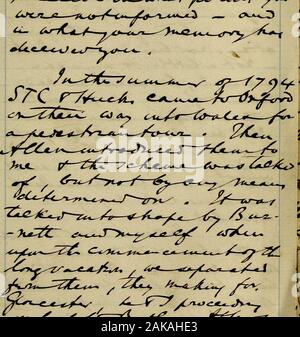 were not informed — and
in what your memory has
deceived you.
In the summer of 1794
STC & Hucks came to Oxford
on their way into Wales for
a pedestrian tour. Then
Allen introduced them to
me & the scheme was talked
of, but not by any means
determined on. It was
talked into shape by Bur-
nett and myself when
upon the commencement of the
long vacation, we separated
from them, they making for
Glocester, he & I proceeding
alamy
www.alamy.com - 2AKAHE3